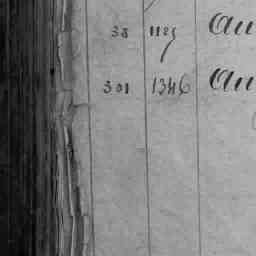 38 1125 Au
301 1346 An